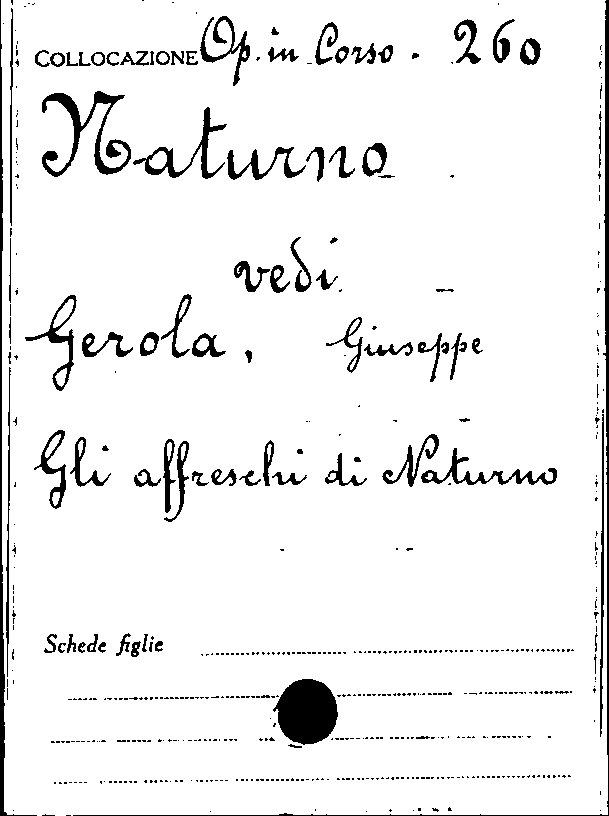 COLLOCAZIONE Op. in Corso. 260
Naturno
vedi
Gerola, Giuseppe
Gli affreschi di Naturno
Schede figlie